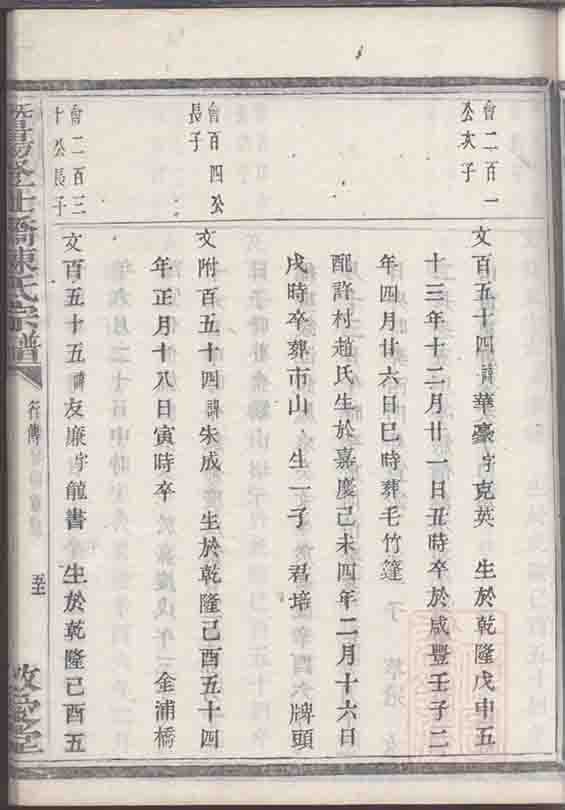 會二百一
公次子
文百五十四諱華豪字克英　生於乾隆戊申五
十三年十二月廿一日丑時卒於咸豐壬子二
年四月廿六日巳時葬毛竹篷
配許村趙氏生於嘉慶己未四年二月十六日
戌時卒葬市山　生一子　君培　牌頭
會百四公
長子
文附百五十四諱朱成　生於乾隆己酉五十四
年正月十八日寅時卒　金浦橋
會二百三
十公長子
文百五十五諱友廉字能書　生於乾隆己酉五
暨陽
橋陳氏宗譜
行傳